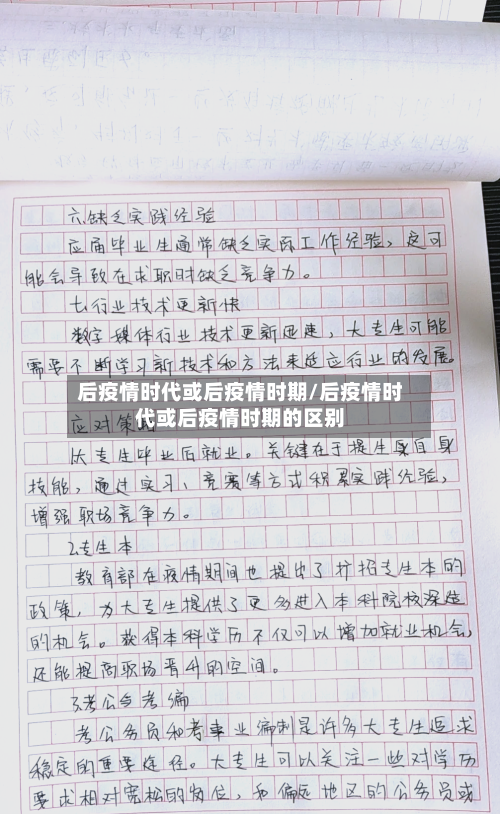 六.缺乏实践经验
应届毕业生通常缺乏实际工作经验，这可
能会导致在求职时缺乏竞争力。
七.行业技术更新快
数字媒体行业技术更新迅速，大专生可能
需要不断学习新技术和方法来适应行业的发展。
后疫情时代或后疫情时期/后疫情时
代或后疫情时期的区别
应对策
大专生毕业后就业。关键在于提生自身
技能，通过实习、竞赛等方式积累实践经验，
增强职场竞争力。
2.专生本
教育部在疫情期间也提出了扩招专生本的
政策，为大专生提供了更多进入本科院校深造
的机会。获得本科学历不仅可以增加就业机会，
还能提高职场晋升的空间。
3.考公与考编
考公务员和考事业编制是许多大专生追求
稳定的重要途径。大专生可以关注一些对学历
要求相对宽松的岗位，和偏远地区的公务员或